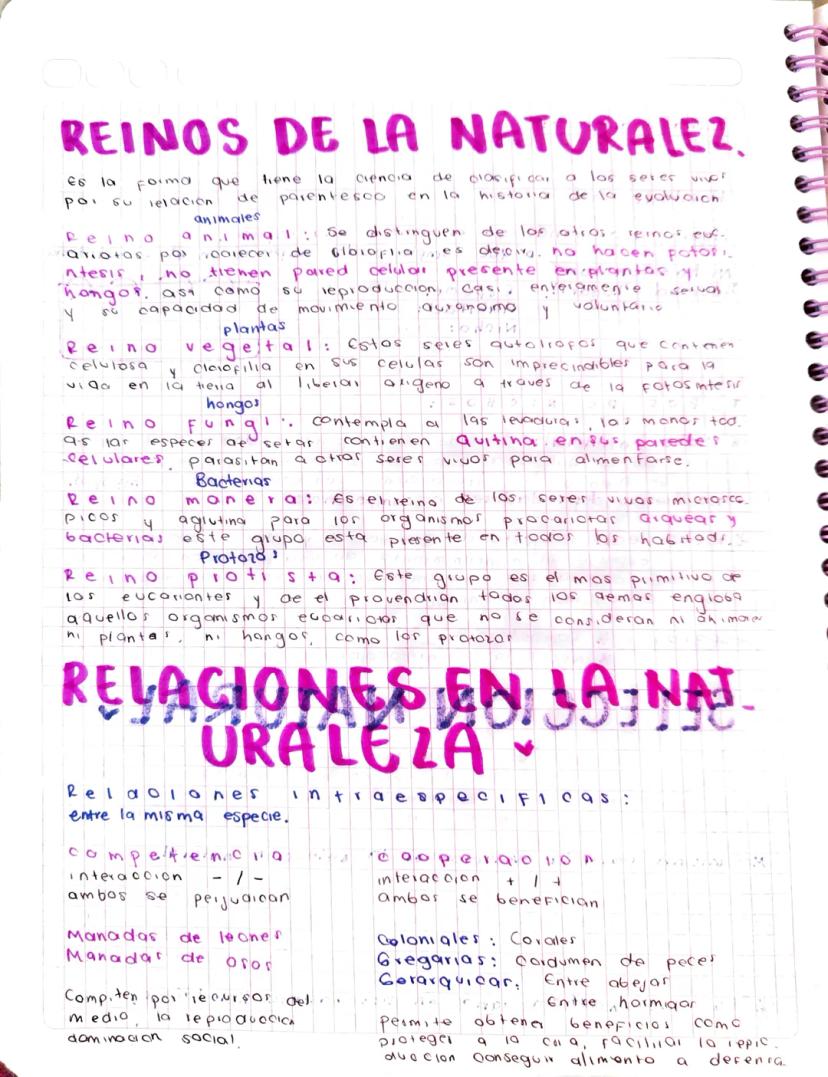 REINOS DE LA NATURALEZ.
Es la forma que tiene la ciencia de clasificar a los seres vivos
por su relacion de parentesco en la historia de la evolucion
animales
Reino animal: Se distinguen de los otros reinos euc.
ariotas por carecer de clorofila, es decir, no hacen fotosi.
ntesis, no tienen pared celular presente en plantas y
hongos. asi como su reproduccion, casi enteramente sexual
y su capacidad de movimiento autonomo y voluntario
plantas
Reino vegetal: Estos seres autotrofos que contienen
celulosa y clorofilia en sus celulas son imprecindibles para la
vida en la tierra al liberar oxigeno a traves de la fotosintesis
hongos
Reino Fungi: contempla a las levaduras, los mohos tod.
as las especes de setas contienen quitina en sus paredes
celulares. parasitan a otros seres vivos para alimentarse.
Bacterias
Reino monera: Es el reino de los seres vivos microsco
picos y aglutina para los organismos procariotas arqueas y
bacterias este grupo esta presente en todos los habitads.
Protozos
Reino protista: Este grupo es el mas primitivo de
los eucariontes y de el provendrian todos los demas engloba
aquellos organismos eucariotas que no se consideran ni animales
ni plantas, ni hongos, como los protozos
RELACIONES EN LA NAT.
URALEZA
Relaciones intraespecificas:
entre la misma especie.
competencia
interaccion - / -
ambos se perjudican
Manadas de leones
Manadas de osos
Compiten por recursos del
medio, la reproduccion
dominacion social.
cooperacion
interaccion + / +
ambos se benefician
Coloniales: Corales
Gregarias: Cardumen de peces
Gerarquicas: Entre abejas
Entre hormigas
Permite obtener beneficios como
proteger a la cria, facilitar la repro.
duccion conseguir alimento a defensa